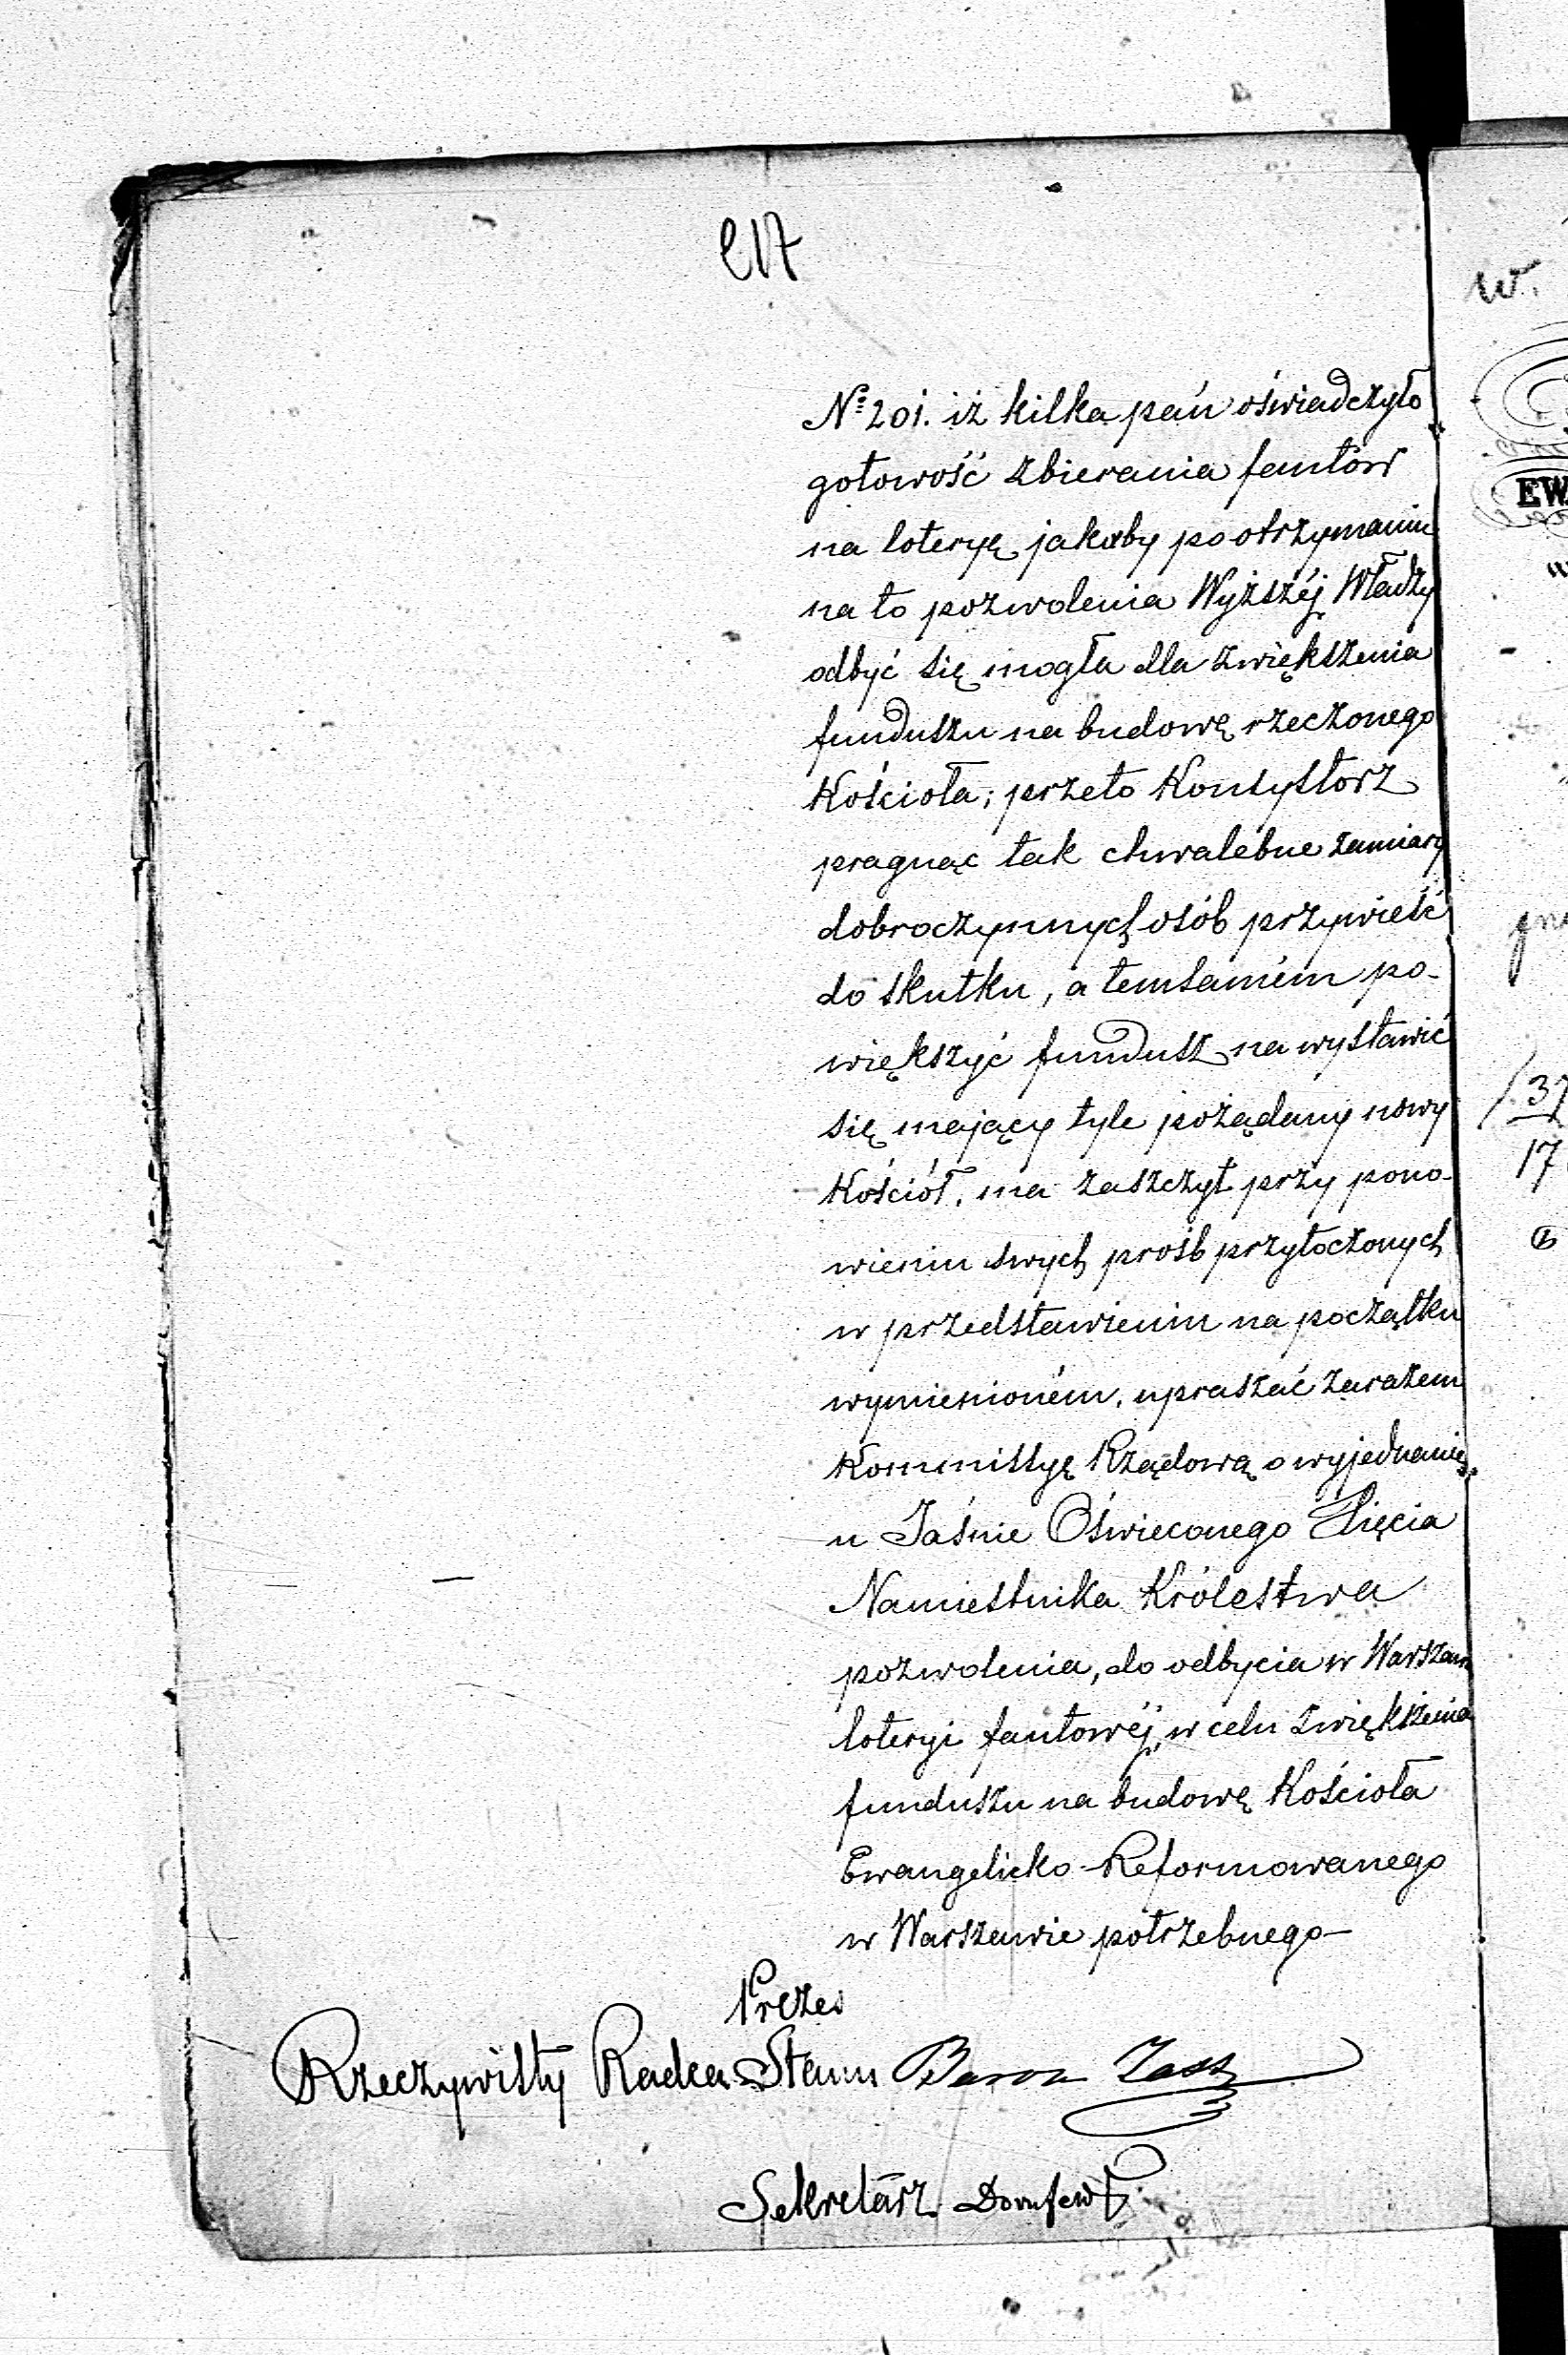 217
№ 201. iż kilka pań oświadczyło
gotowość zbierania fantów
na loteryę jakaby po otrzymaniu
na to pozwolenia Wyższéj Władzy
odbyć się mogła dla zwiększenia
funduszu na budowę rzeczonego
Kościoła; przeto Konsystorz
pragnąc tak chwalebne zamiary
dobroczynnych osób przywieść
do skutku, a temsamém po-
większyć fundusz na wystawić
się mający tyle pożądany nowy
Kościół, ma zaszczyt przy pono-
wieniu swych próśb przytoczonych
w przedstawieniu na początku
wymienioném, upraszać zarazem
Kommissyę Rządową o wyjednanie
u Jaśnie Oświeconego Xsięcia
Namiestnika Królestwa
pozwolenia, do odbycia w Warszaw
loteryi fantowéj, w celu zwiększenia
funduszu na budowę Kościoła
Ewangelicko-Reformowanego
w Warszawie potrzebnego—
Prezes
Rzeczywisty Radca Stanu Baron
Sekretarz
w.
EW
37
17